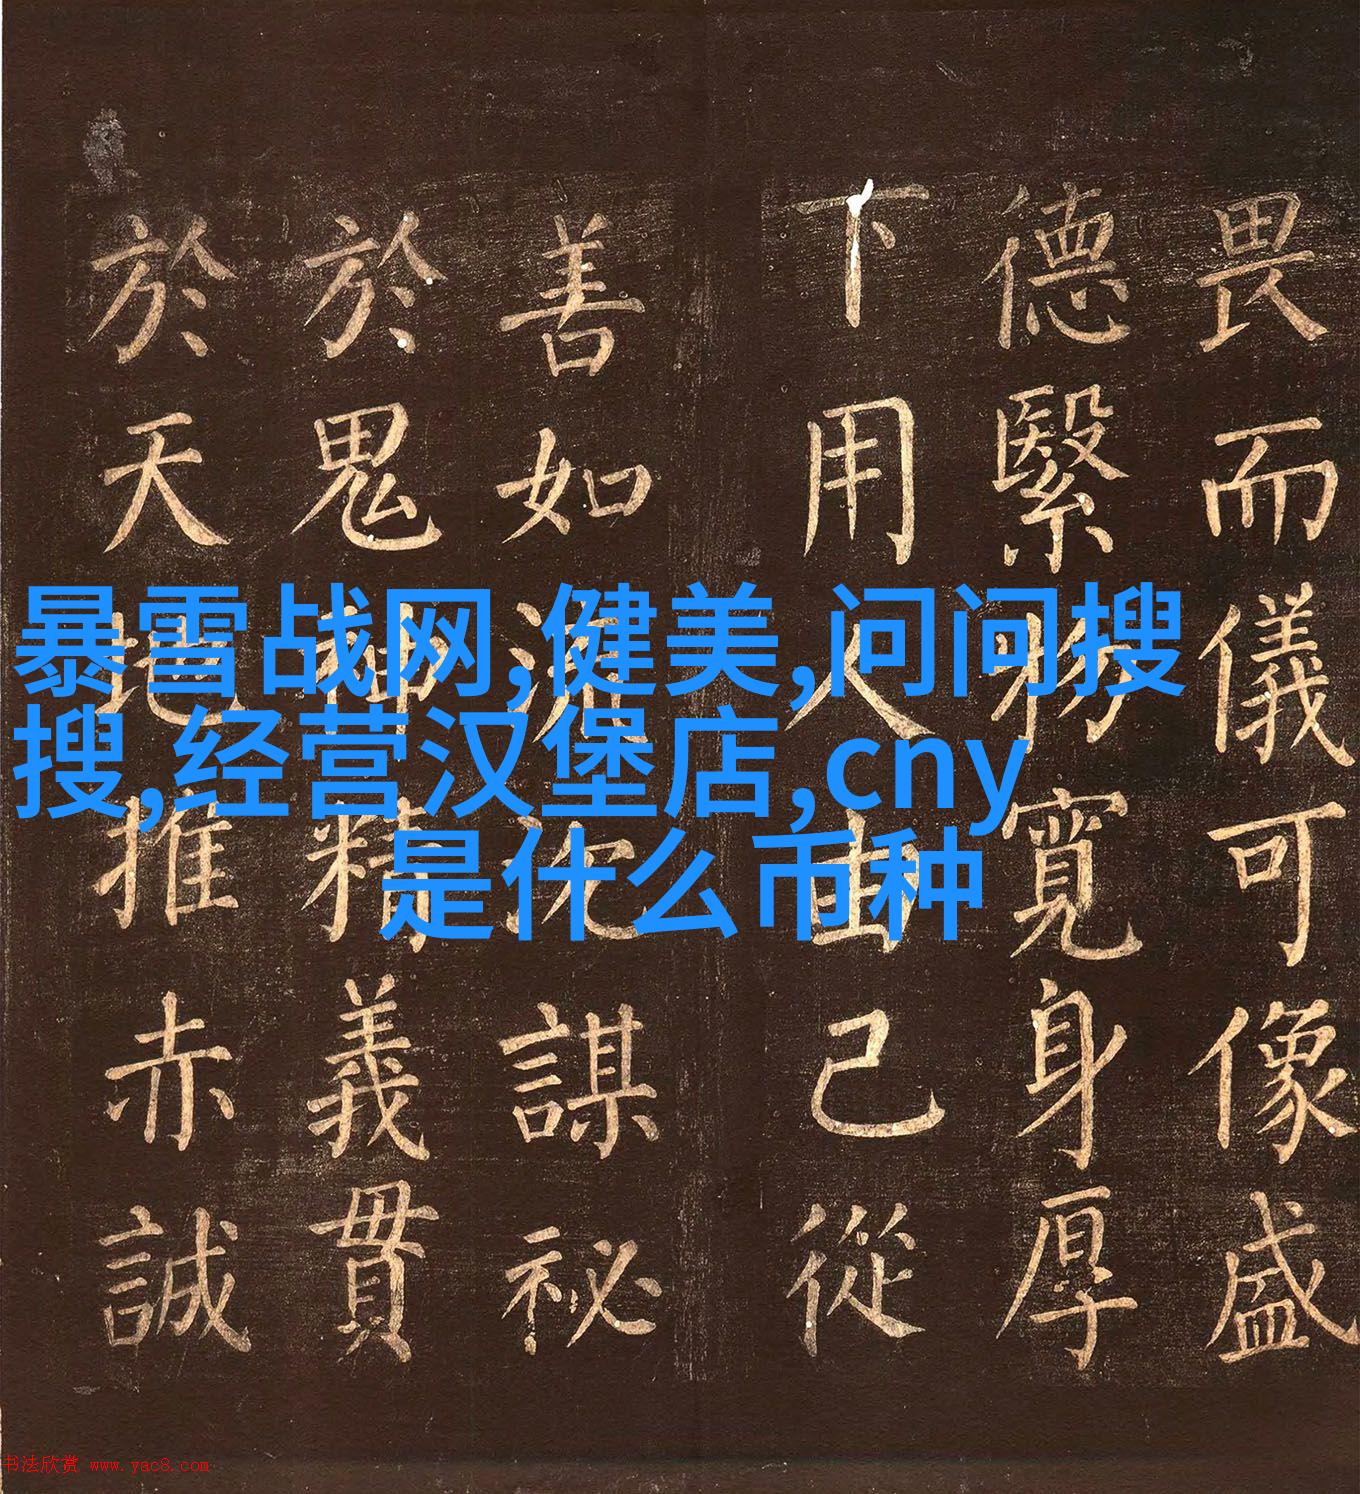 畏而儀可像盛
德繄物寬身厚
下用人由己從
善如流沈謀祕
於鬼神精義貫
於天地推赤誠
暴雪战网,健美,问问搜
搜,经营汉堡店,cny
是什么币种
书法欣赏 www.yac8.com